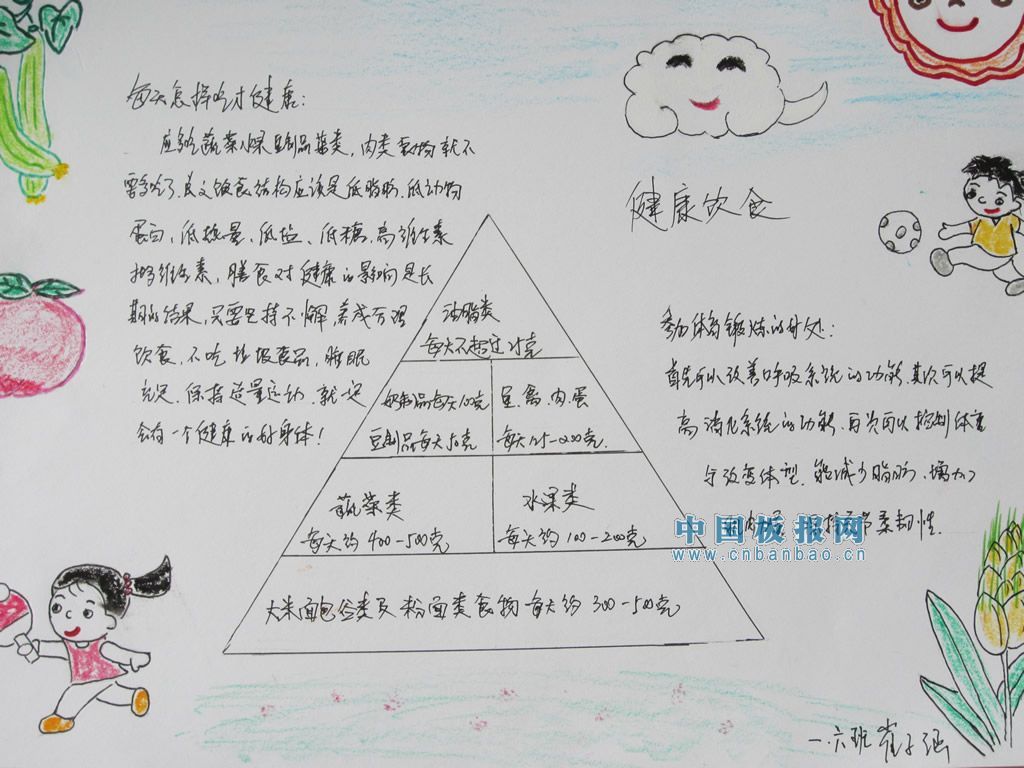 每天怎样吃才健康:
应多吃蔬菜水果豆制品菌类,肉类食物就不
要多吃了.其次饮食结构应该是低脂肪.低动物
蛋白、低热量、低盐、低糖、高维生素
维生素,膳食对健康的影响是长
期的结果,只要坚持不懈,养成合理
饮食,不吃垃圾食品,睡眠
充足.保持适量运动.就
会有一个健康的好身体!
健康饮食
油脂类
每天不超过25克
奶制品每天100克
豆制品每天50克
鱼.禽.肉.蛋
每天125-200克.
蔬菜类
每天约400-500克
水果类
每天约100-200克
大米面包谷类及粉面类食物每天约300-500克
参加体育锻炼的好处:
首先可以改善呼吸系统的功能.其次可以提
高消化系统的功能.再次可以控制体重
与改变体型.能减少脂肪、增加
肌肉 柔韧性.
中国板报网
www.cnbanbao.cn
一.六班 崔子涵